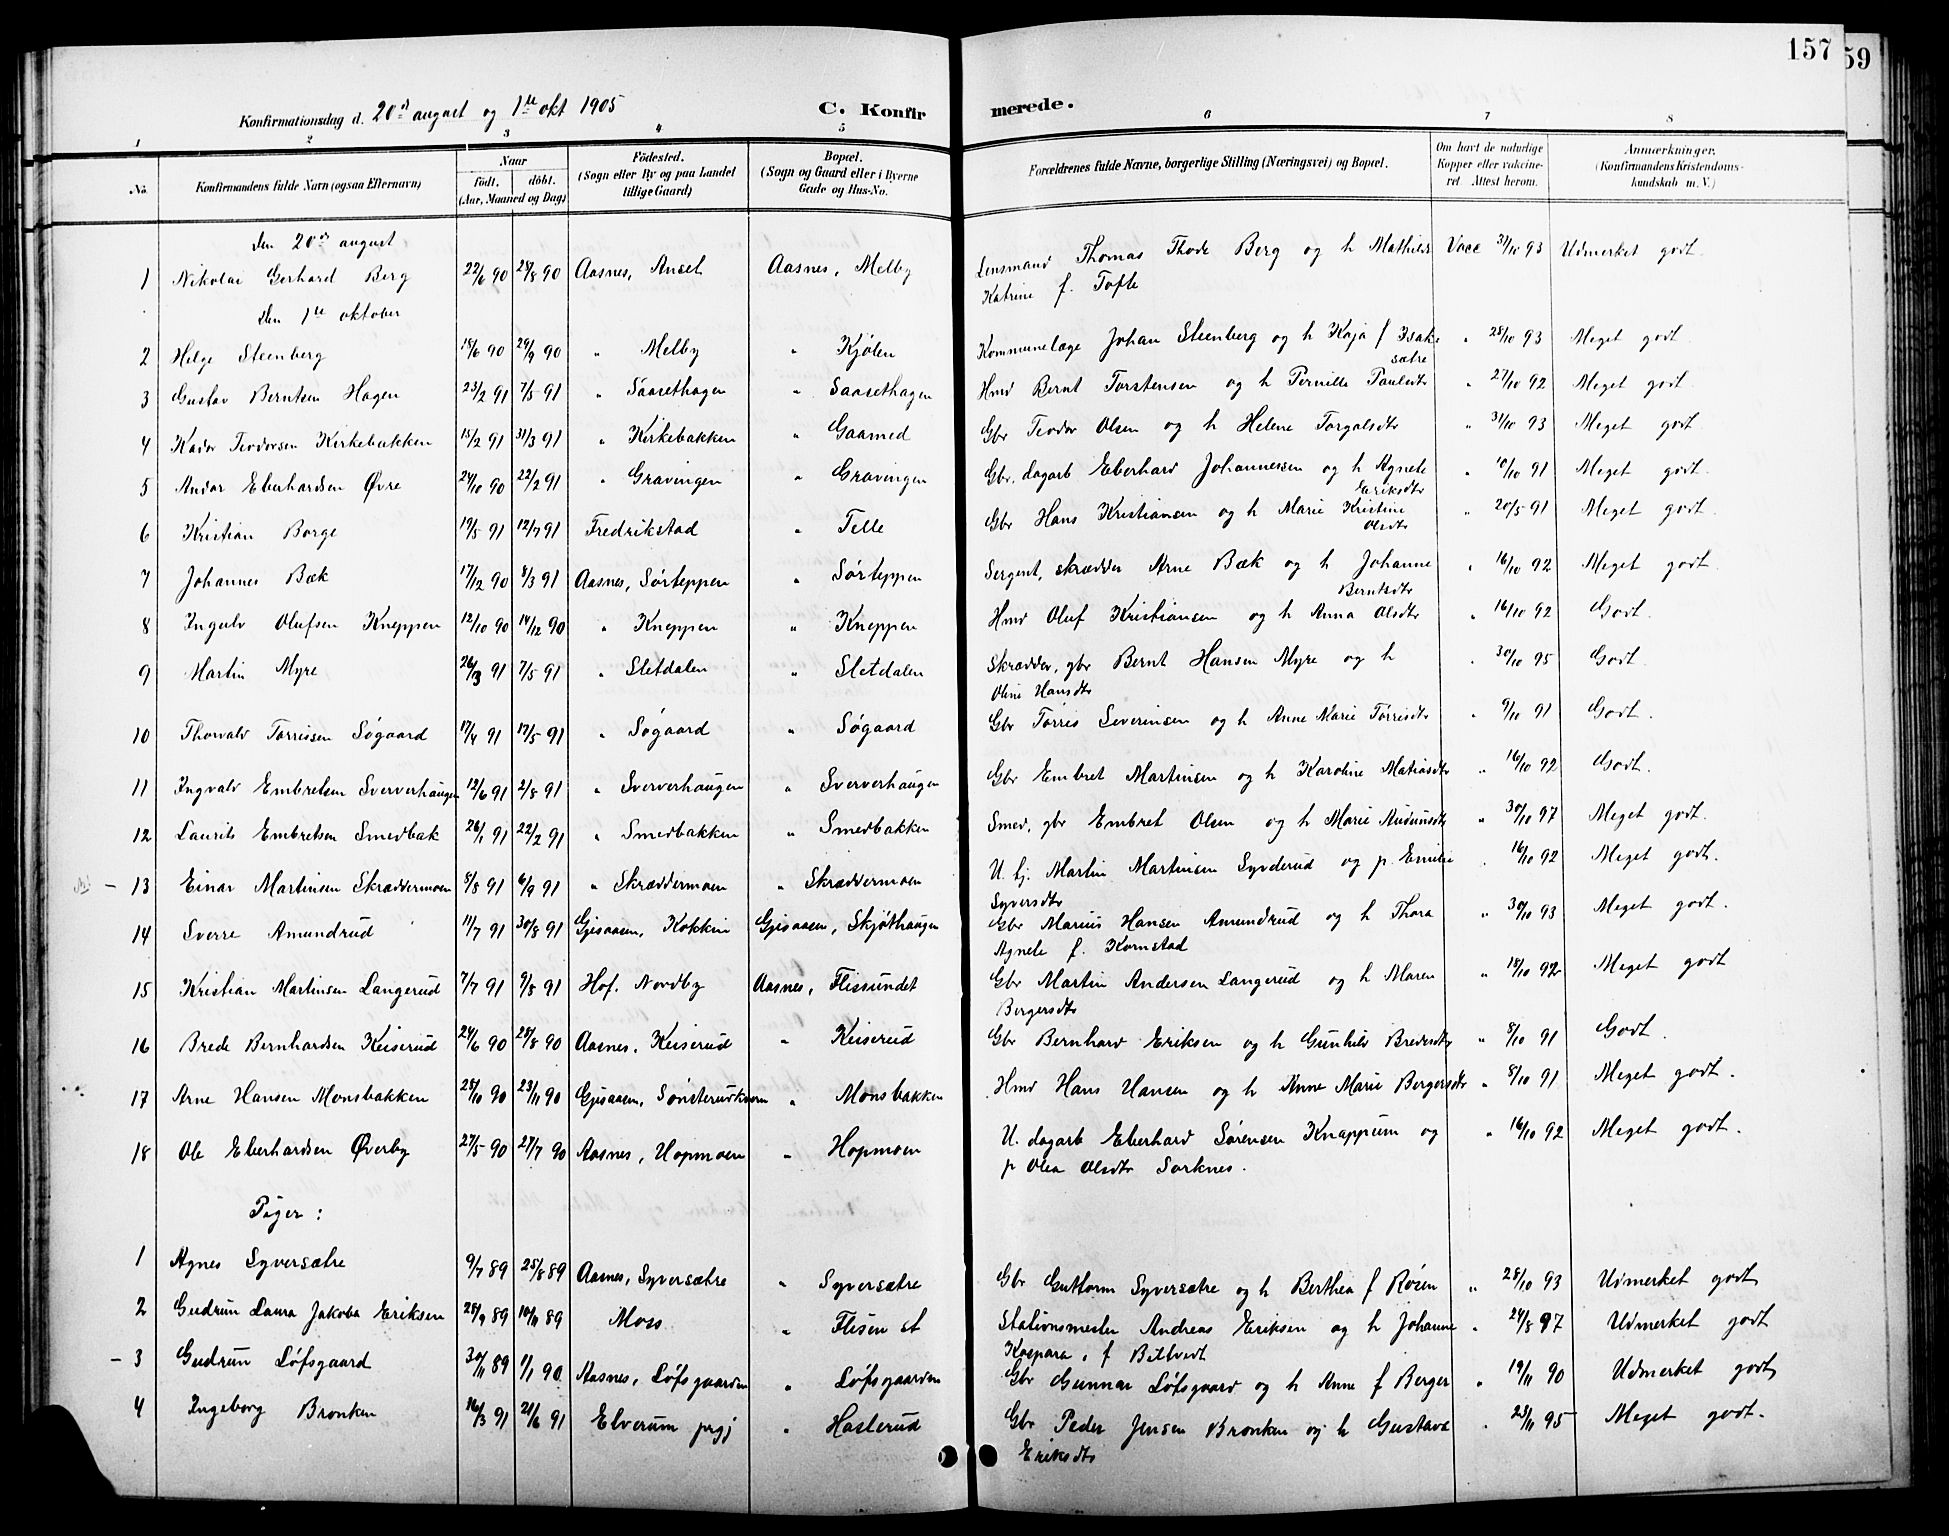 157
59
Konfirmationsdag d. 20de august og 1ste okt 1905
C. Konfirmerede.
1 2 3 4 5 6 7 8
No.
Konfirmandens fulde Navn (ogsaa Efternavn)
Naar
födt. döbt.
(Aar, Maaned og Dag)
Födested.
(Sogn eller By og paa Landet
tillige Gaard)
Bopæl.
(Sogn og Gaard eller i Byerne
Gade og Hus-No.
Forældrenes fulde Navne, borgerlige Stilling (Næringsvei) og Bopæl.
Om havt de naturlige
Kopper eller vakcine-
ret. Attest herom.
Anmærkninger.
(Konfirmandens Kristendoms-
kundskab m. V.)
Den 20de august
1 Nikolai Gerhard Berg 22/6 90 24/8 90 Aasnes, Anset Aasnes, Melby Lensmand Thomas Thode Berg og h Mathilde Vacc 31/10 93 Udmerket godt.
Katrine f. Tofte
Den 1ste oktober
2 Helge Steenberg 15/6 90 29/9 90 " Melby " Kjølen Kommunelæge Johan Steenberg og h Kaja f Isak- " 28/10 93 Meget godt.
sætre
3 Gustav Berntsen Hagen 23/2 91 7/5 91 " Saasethagen " Saasethagen Hmd Bernt Torstensen og h Pernille Paulsdtr " 27/10 92 Meget godt.
4 Kador Teodorsen Kirkebakken 15/2 91 31/3 91 " Kirkebakken " Gaamed Gbr Teodor Olsen og h Helene Torgalsdtr " 31/10 93 Meget godt.
5 Andor Eberhardsen Øvre 24/10 90 22/2 91 " Gravingen " Gravingen Gbr. dagarb Eberhard Johannessen og h Agnete " 10/10 91 Meget godt.
Eriksdtr
6 Kristian Borge 19/5 91 12/7 91 Fredrikstad " Telle Gbr Hans Kristiansen og h Marie Kristine " 20/5 91 Meget godt.
Olsdtr
7 Johannes Bæk 17/12 90 8/3 91 Aasnes, Sørteppen " Sørteppen Sergent, skrædder Arne Bæk og h Johanne " 16/10 92 Meget godt.
Berntsdtr
8 Ingulv Olufsen Kneppen 12/10 90 14/12 90 " Kneppen " Kneppen Hmd Oluf Kristiansen og h Anna Olsdtr " 16/10 92 Godt.
9 Martin Myre 26/3 91 7/5 91 " Sletdalen " Sletdalen Skrædder, gbr Bernt Hansen Myre og h " 30/10 95 Godt.
Oline Hansdtr
10 Thorvald Tørrissen Søgaard 17/4 91 17/5 91 " Søgaard " Søgaard Gbr Tørris Severinsen og h Anne Marie Tørrisdtr " 9/10 91 Godt.
11 Ingvald Embretsen Sververhaugen 12/6 91 2/8 91 " Sververhaugen " Sververhaugen Gbr Embret Martinsen og h Karoline Matiasdtr " 16/10 92 Godt.
12 Laurits Embretsen Smedbak 26/1 91 22/2 91 " Smedbakken " Smedbakken Smed, gbr Embret Olsen og h Marie Audunsdtr " 30/10 97 Meget godt.
– 13 Einar Martinsen Skræddermoen 8/8 91 6/9 91 " Skræddermoen " Skræddermoen U. tj. Martin Martinsen Synderud og p. Emilie " 16/10 92 Meget godt.
Syversdtr
14 Sverre Amundrud 11/7 91 30/8 91 Gjesaasen, Kokkin Gjesaasen, Skjøthaugen Gbr Marius Hansen Amundrud og h Thora " 30/10 93 Meget godt.
Agnete f. Kornstad
15 Kristian Martinsen Langerud 7/7 91 9/8 91 Hof. Nordby Aasnes, Flissundet Gbr Martin Andersen Langerud og h Maren " 18/10 92 Meget godt
Bergersdtr
16 Brede Bernhardsen Keiserud 24/6 90 28/8 90 Aasnes. Keiserud " Keiserud Gbr Bernhard Eriksen og h Gunhild Bredesdtr " 8/10 91 Godt.
17 Arne Hansen Monsbakken 25/10 90 23/11 90 Gjesaasen, Sønsterudkvern " Monsbakken Hmd Hans Hansen og h Anne Marie Bergersdtr " 8/10 91 Meget godt.
18 Ole Eberhardsen Øverby 27/5 90 27/7 90 Aasnes, Hopmoen " Hopmoen U. dagarb Eberhard Sørensen Knappum og " 16/10 92 Meget godt.
p Olea Olsdtr Sorknes.
Piger:
1 Agnes Syversætre 9/7 89 25/8 89 Aasnes, Syversætre " Syversætre Gbr Guttorm Syversætre og h Berthea f Røsen " 28/10 93 Udmerket godt
2 Gudrun Laura Jakoba Eriksen 28/9 89 10/11 89 Moss " Flisen st Stationsmester Andreas Eriksen og h Johanne " 24/8 97 Udmerket godt
Kaspara, f Biltvedt
– 3 Gudrun Løfsgaard 30/11 89 1/1 90 Aasnes, Løfsgaarden " Løfsgaarden Gbr Gunnar Løfsgaard og h Anne f Berger " 19/11 90 Udmerket godt
4 Ingeborg Bronken 16/3 91 21/6 91 Elverum prgj " Hasterud Gbr Peder Jensen Bronken og h Gustava " 23/11 95 Meget godt.
Eriksdtr